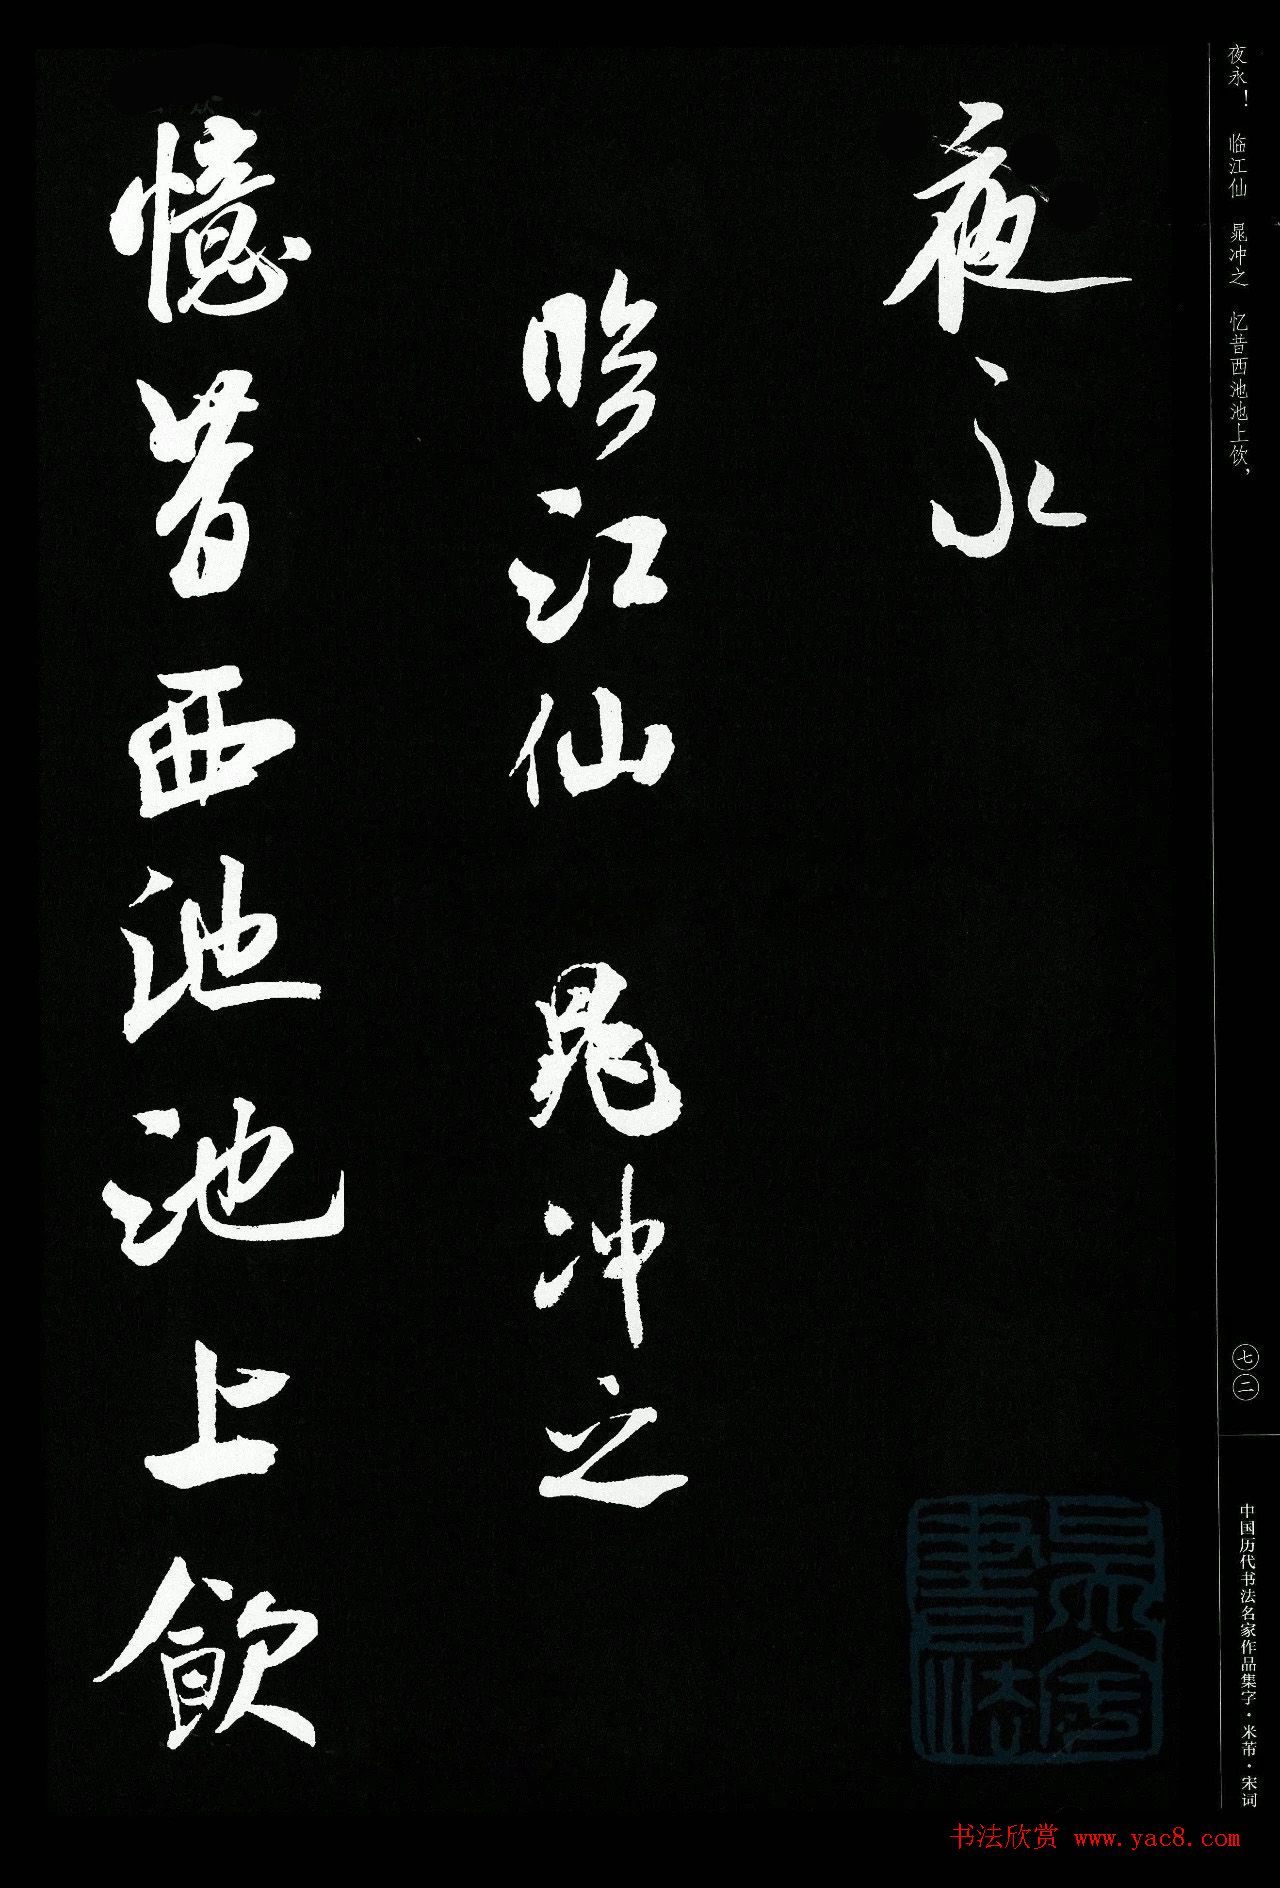 夜永！ 临江仙 晁冲之 忆昔西池池上饮，
七二
中国历代书法名家作品集字·米芾·宋词
夜永
临江仙 晁冲之
憶昔西池池上飲
書法
书法欣赏 www.yac8.com